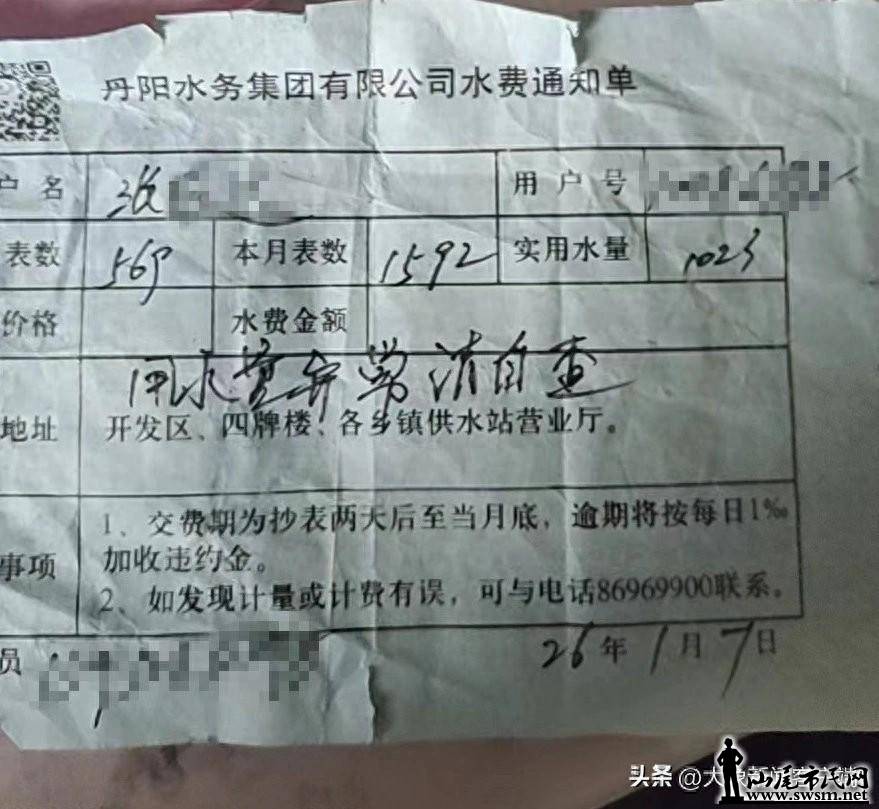 丹阳水务集团有限公司水费通知单
户 名 张 用 户 号
表数 569 本月表数 1592 实用水量 1023
价格 水费金额
用水量异常请自查
地址 开发区、四牌楼、各乡镇供水站营业厅。
1、交费期为抄表两天后至当月底，逾期将按每日1‰
事项 加收违约金。
2、如发现计量或计费有误，可与电话86969900联系。
员 26年1月7日
头条 @大
汕尾市民网
www.swsm.net